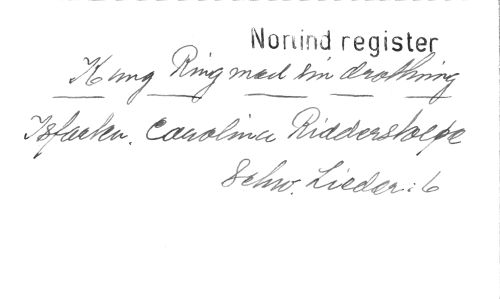 Norlind register
Kung Ring med sin drottning
Isfarten. Carolina Ridderstolpe
Schw. Lieder: 6